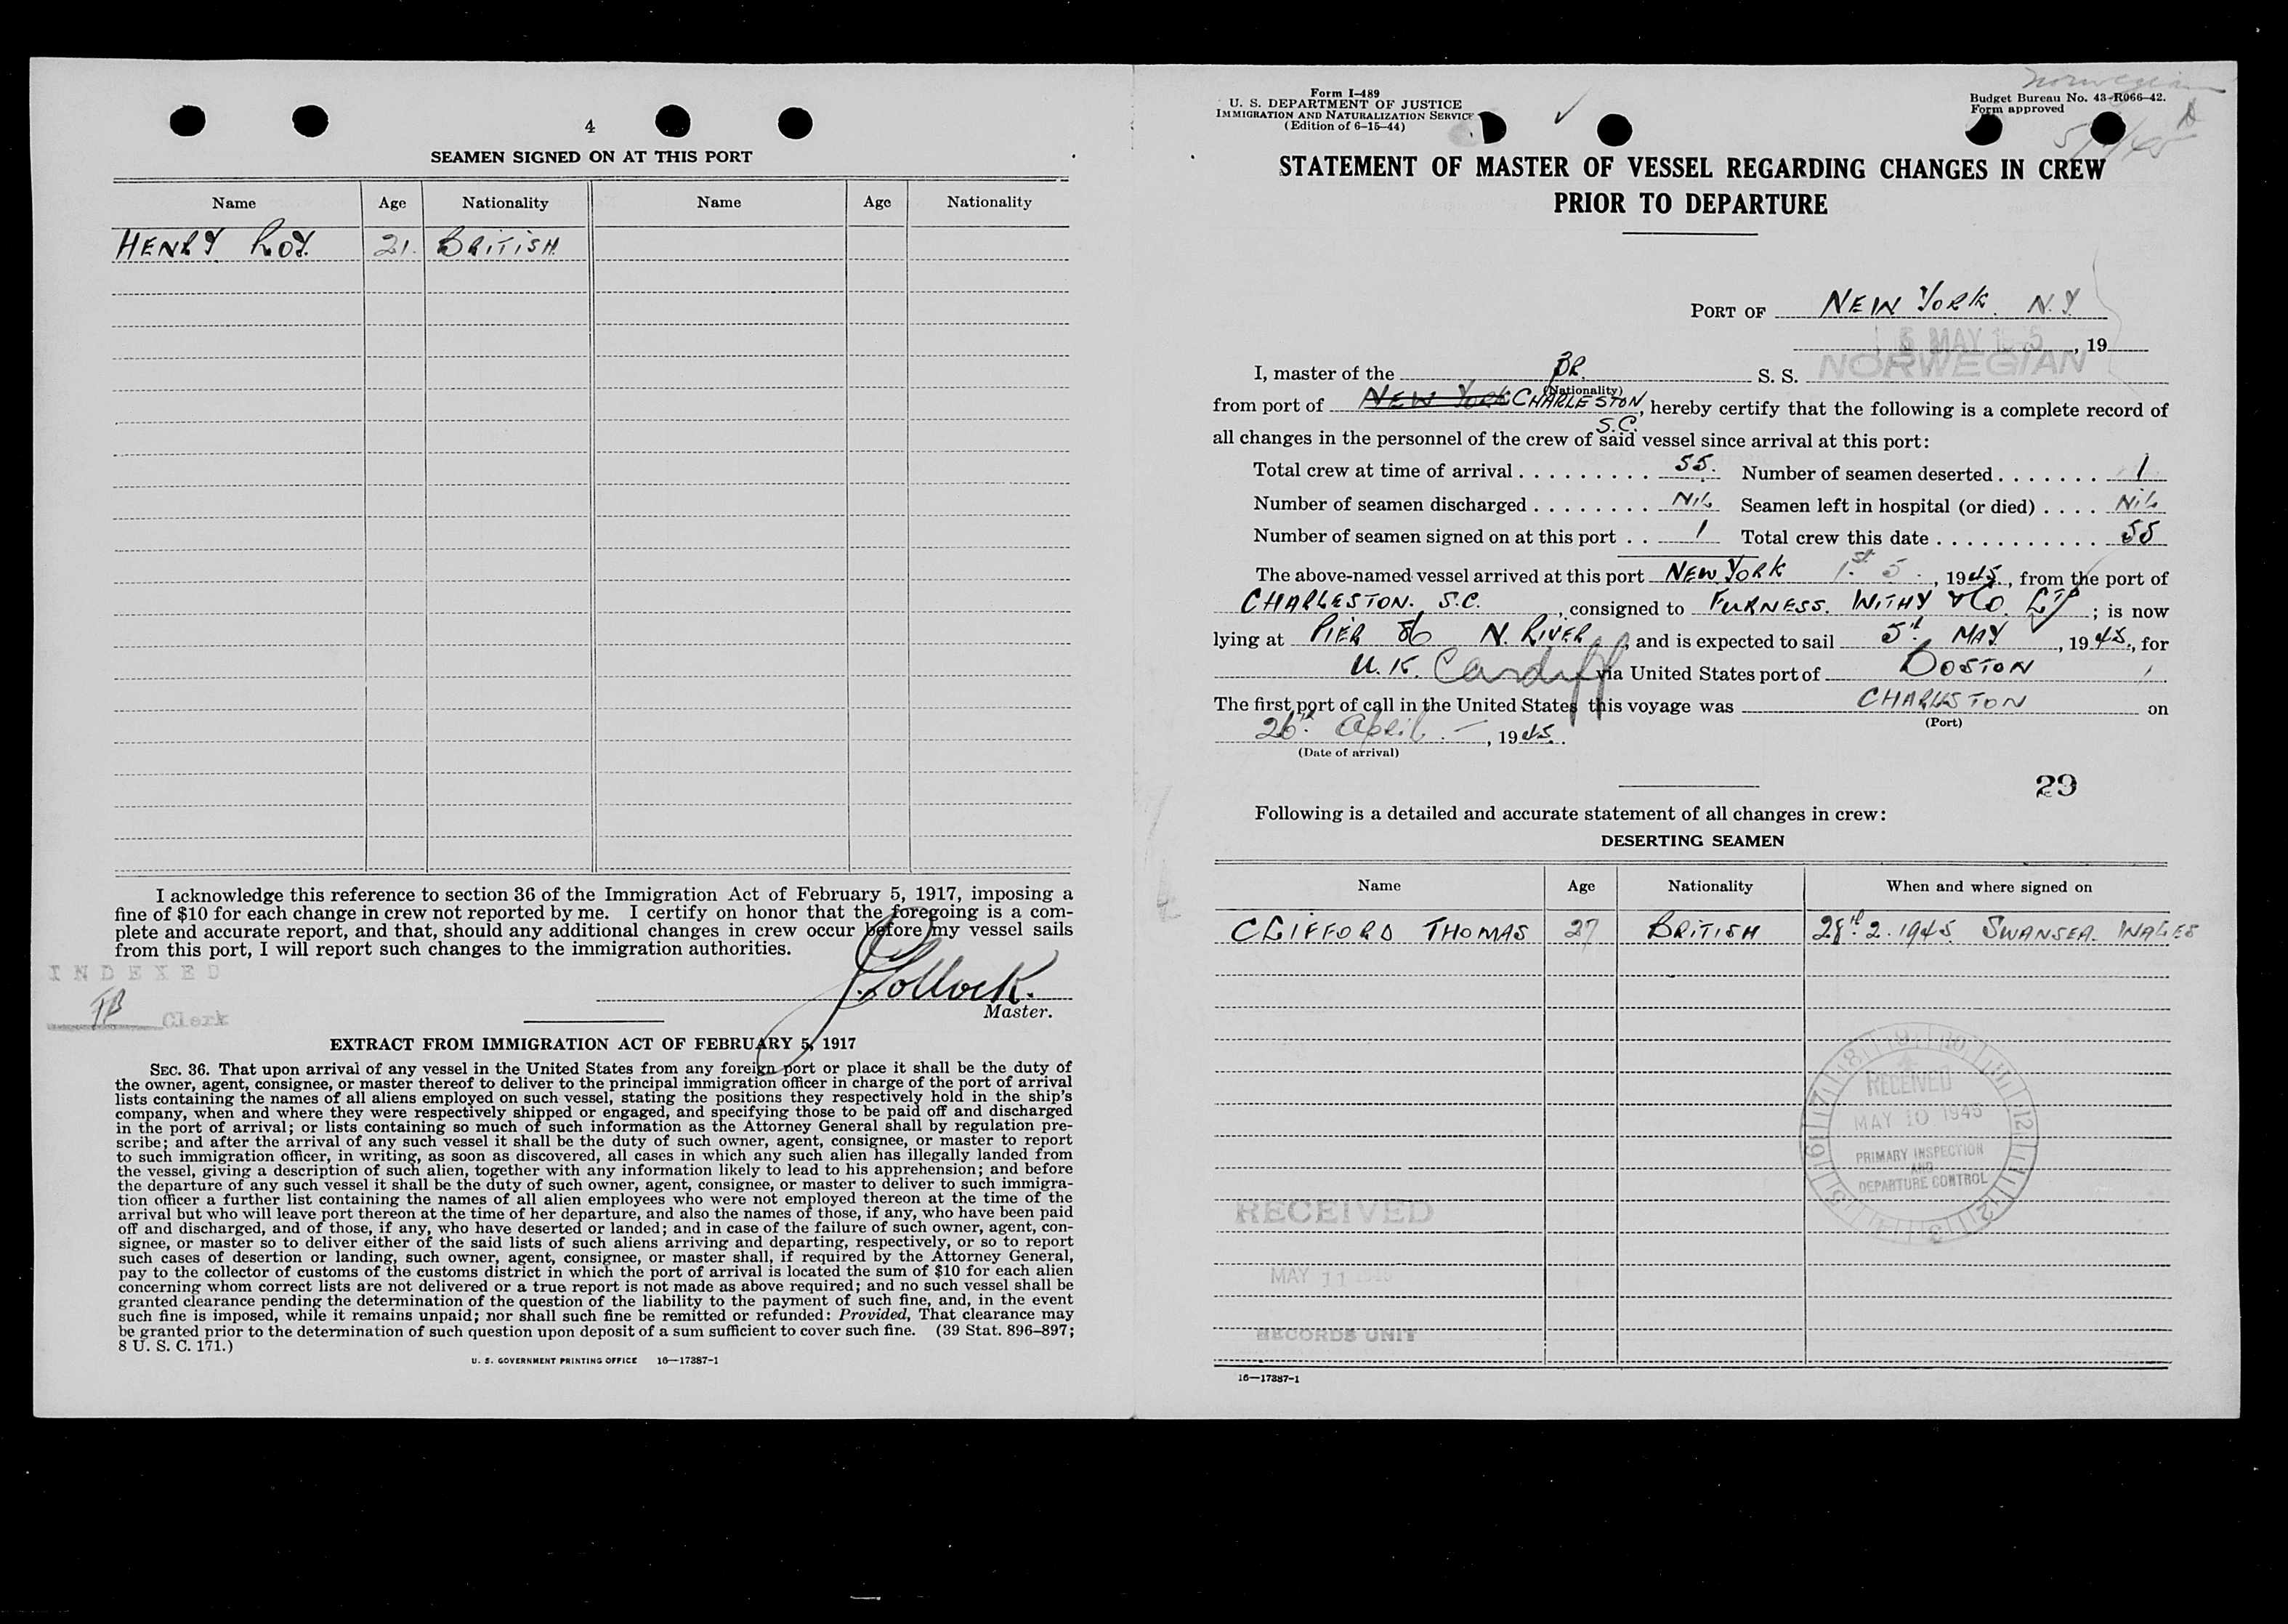 4
SEAMEN SIGNED ON AT THIS PORT
Name Age Nationality Name Age Nationality
HENRY ROY. 21. BRITISH.
I acknowledge this reference to section 36 of the Immigration Act of February 5, 1917, imposing a
fine of $10 for each change in crew not reported by me. I certify on honor that the foregoing is a com-
plete and accurate report, and that, should any additional changes in crew occur before my vessel sails
from this port, I will report such changes to the immigration authorities.
INDEXED
Clerk
J. Pollock.
Master.
EXTRACT FROM IMMIGRATION ACT OF FEBRUARY 5, 1917
SEC. 36. That upon arrival of any vessel in the United States from any foreign port or place it shall be the duty of
the owner, agent, consignee, or master thereof to deliver to the principal immigration officer in charge of the port of arrival
lists containing the names of all aliens employed on such vessel, stating the positions they respectively hold in the ship's
company, when and where they were respectively shipped or engaged, and specifying those to be paid off and discharged
in the port of arrival; or lists containing so much of such information as the Attorney General shall by regulation pre-
scribe; and after the arrival of any such vessel it shall be the duty of such owner, agent, consignee, or master to report
to such immigration officer, in writing, as soon as discovered, all cases in which any such alien has illegally landed from
the vessel, giving a description of such alien, together with any information likely to lead to his apprehension; and before
the departure of any such vessel it shall be the duty of such owner, agent, consignee, or master to deliver to such immigra-
tion officer a further list containing the names of all alien employees who were not employed thereon at the time of the
arrival but who will leave port thereon at the time of her departure, and also the names of those, if any, who have been paid
off and discharged, and of those, if any, who have deserted or landed; and in case of the failure of such owner, agent, con-
signee, or master so to deliver either of the said lists of such aliens arriving and departing, respectively, or so to report
such cases of desertion or landing, such owner, agent, consignee, or master shall, if required by the Attorney General,
pay to the collector of customs of the customs district in which the port of arrival is located the sum of $10 for each alien
concerning whom correct lists are not delivered or a true report is not made as above required; and no such vessel shall be
granted clearance pending the determination of the question of the liability to the payment of such fine, and, in the event
such fine is imposed, while it remains unpaid; nor shall such fine be remitted or refunded: Provided, That clearance may
be granted prior to the determination of such question upon deposit of a sum sufficient to cover such fine. (39 Stat. 896–897;
8 U. S. C. 171.)
U. S. GOVERNMENT PRINTING OFFICE 16—17387-1
Norwegian
Form I–489
U. S. DEPARTMENT OF JUSTICE
IMMIGRATION AND NATURALIZATION SERVICE
(Edition of 6–15–44)
Budget Bureau No. 43–R066–42.
Form approved
STATEMENT OF MASTER OF VESSEL REGARDING CHANGES IN CREW
PRIOR TO DEPARTURE
PORT OF NEW YORK. N.Y.
MAY , 19
I, master of the BR. S. S. NORWEGIAN
(Nationality)
from port of NEW YORK CHARLESTON, S.C. hereby certify that the following is a complete record of
all changes in the personnel of the crew of said vessel since arrival at this port:
Total crew at time of arrival 55. Number of seamen deserted 1
Number of seamen discharged NIL Seamen left in hospital (or died) NIL
Number of seamen signed on at this port 1 Total crew this date 55
The above-named vessel arrived at this port NEW YORK 1st 5., 1945, from the port of
CHARLESTON. S.C., consigned to FURNESS. WITHY & CO. LTD; is now
lying at PIER 86 N. RIVER, and is expected to sail 5th MAY, 1945, for
U.K. Cardiff via United States port of BOSTON
The first port of call in the United States this voyage was CHARLSTON on
(Port)
26th April. –, 1945.
(Date of arrival)
29
Following is a detailed and accurate statement of all changes in crew:
DESERTING SEAMEN
Name Age Nationality When and where signed on
CLIFFORD THOMAS 27 BRITISH 28th 2. 1945 SWANSEA. WALES
RECEIVED
MAY 10 1945
PRIMARY INSPECTION
AND
DEPARTURE CONTROL
RECEIVED
MAY 11 1945
RECORDS UNIT
16—17387-1